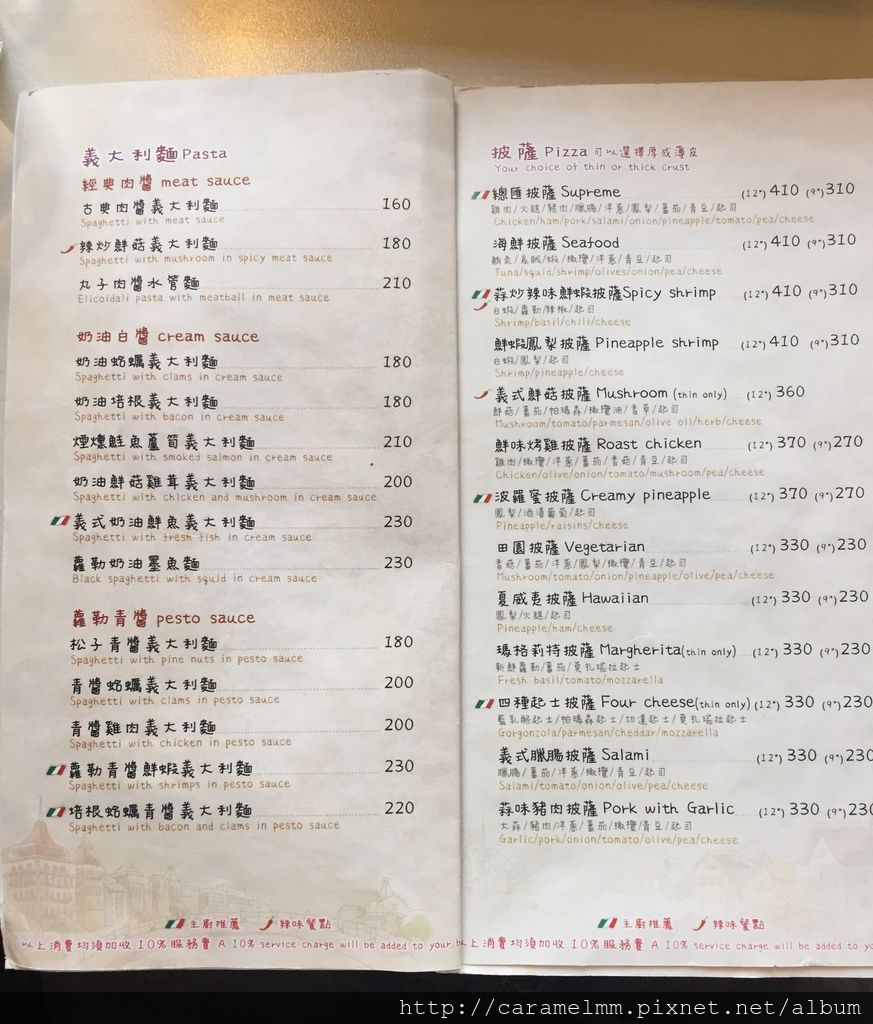 義大利麵 Pasta
經典肉醬 meat sauce
古典肉醬義大利麵 160
Spaghetti with meat sauce
辣炒鮮菇義大利麵 180
Spaghetti with mushroom in spicy meat sauce
丸子肉醬水管麵 210
Elicoidali pasta with meatball in meat sauce
奶油白醬 cream sauce
奶油蛤蠣義大利麵 180
Spaghetti with clams in cream sauce
奶油培根義大利麵 180
Spaghetti with bacon in cream sauce
煙燻鮭魚蘆筍義大利麵 210
Spaghetti with smoked salmon in cream sauce
奶油鮮菇雞茸義大利麵 200
Spaghetti with chicken and mushroom in cream sauce
義式奶油鮮魚義大利麵 230
Spaghetti with fresh fish in cream sauce
蘿勒奶油墨魚麵 230
Black spaghetti with squid in cream sauce
蘿勒青醬 pesto sauce
松子青醬義大利麵 180
Spaghetti with pine nuts in pesto sauce
青醬蛤蠣義大利麵 200
Spaghetti with clams in pesto sauce
青醬雞肉義大利麵 200
Spaghetti with chicken in pesto sauce
蘿勒青醬鮮蝦義大利麵 230
Spaghetti with shrimps in pesto sauce
培根蛤蠣青醬義大利麵 220
Spaghetti with bacon and clams in pesto sauce
主廚推薦 辣味餐點
以上消費均須加收 10%服務費 A 10% service charge will be added to your b
披薩 Pizza 可以選擇厚或薄皮
Your choice of thin or thick crust
總匯披薩 Supreme (12") 410 (9") 310
雞肉/火腿/豬肉/臘腸/洋蔥/鳳梨/蕃茄/青豆/起司
Chicken/ham/pork/salami/onion/pineapple/tomato/pea/cheese
海鮮披薩 Seafood (12") 410 (9") 310
鮪魚/烏賊/蝦/橄欖/洋蔥/青豆/起司
Tuna/squid/shrimp/olives/onion/pea/cheese
蒜炒辣味鮮蝦披薩Spicy shrimp (12") 410 (9") 310
白蝦/蘿勒/辣椒/起司
Shrimp/basil/chili/cheese
鮮蝦鳳梨披薩 Pineapple shrimp (12") 410 (9") 310
白蝦/鳳梨/起司
Shrimp/pineapple/cheese
義式鮮菇披薩 Mushroom (thin only) (12") 360
鮮菇/蕃茄/帕瑪森/橄欖油/香草/起司
Mushroom/tomato/parmesan/olive oil/herb/cheese
鮮味烤雞披薩 Roast chicken (12") 370 (9") 270
雞肉/橄欖/洋蔥/蕃茄/香菇/青豆/起司
Chicken/olive/onion/tomato/mushroom/pea/cheese
波羅蜜披薩 Creamy pineapple (12") 370 (9") 270
鳳梨/酒漬葡萄/起司
Pineapple/raisins/cheese
田園披薩 Vegetarian (12") 330 (9") 230
香菇/蕃茄/洋蔥/鳳梨/橄欖/青豆/起司
Mushroom/tomato/onion/pineapple/olive/pea/cheese
夏威夷披薩 Hawaiian (12") 330 (9") 230
鳳梨/火腿/起司
Pineapple/ham/cheese
瑪格莉特披薩 Margherita(thin only) (12") 330 (9") 230
新鮮蘿勒/蕃茄/莫扎瑞拉起士
Fresh basil/tomato/mozzarella
四種起士披薩 Four cheese(thin only) (12") 330 (9") 230
藍乳酪起士/帕瑪森起士/切達起士/莫扎瑞拉起士
Gorgonzola/parmesan/cheddar/mozzarella
義式臘腸披薩 Salami (12") 330 (9") 230
臘腸/蕃茄/洋蔥/橄欖/青豆/起司
Salami/tomato/onion/olive/pea/cheese
蒜味豬肉披薩 Pork with Garlic (12") 330 (9") 230
大蒜/豬肉/洋蔥/蕃茄/橄欖/青豆/起司
Garlic/pork/onion/tomato/olive/pea/cheese
主廚推薦 辣味餐點
以上消費均須加收 10%服務費 A 10% service charge will be added to yo
http://caramelmm.pixnet.net/album